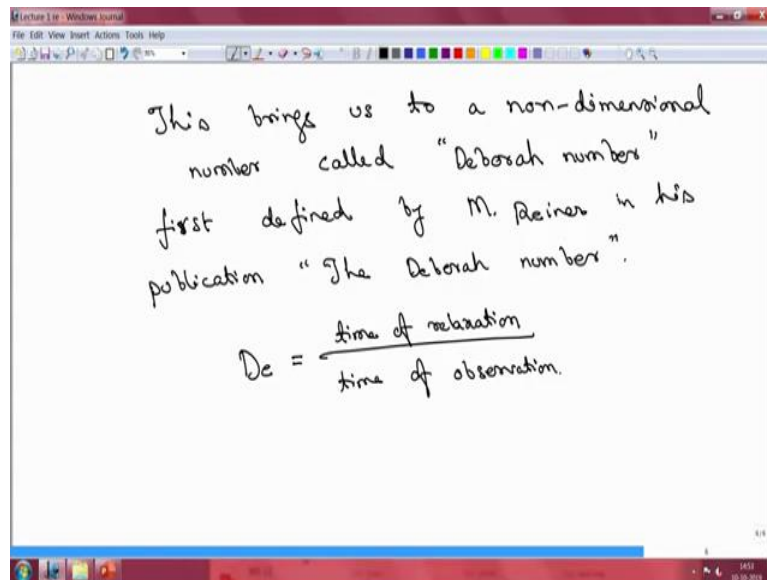 Lecture 1 re - Windows Journal
File Edit View Insert Actions Tools Help
This brings us to a non-dimensional
number called "Deborah number"
first defined by M. Reiner in his
publication "The Deborah number".
De = time of relaxation
time of observation.
6/6
6
1453